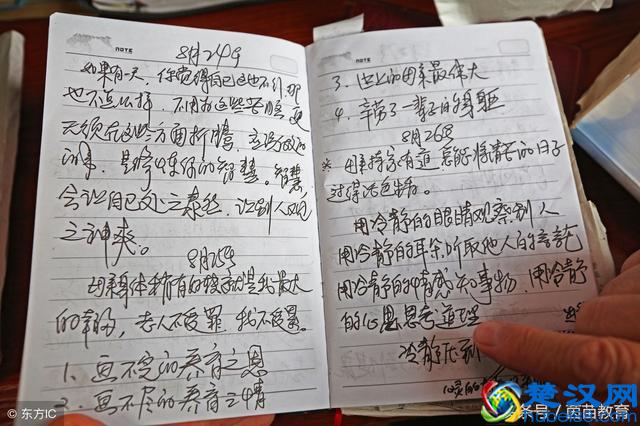 NOTE
8月24日
如果有一天，你觉得自己这也不行，那
也不怎么样，不用为这些苦恼，更
无须在这些方面折腾，
是修炼你的智慧。智慧
会让自己处之泰然，让别人
之神爽。
8月25日
母亲身体 是我最大
的幸福，老人不受罪，我不受累。
1、画不完的养育之恩
2、画不尽的养育之情
NOTE
3、世上的母亲最伟大
4、辛劳了一辈子的身躯
8月26日
*母亲持家有道，总能将清苦的日子
过得活色生香。
用冷静的眼睛观察别人
用冷静的耳朵听取他人的言论
用冷静的情感 知事物，用冷静
的心思思考道理
冷静
©东方IC
头条号／茵苗教育
楚汉网